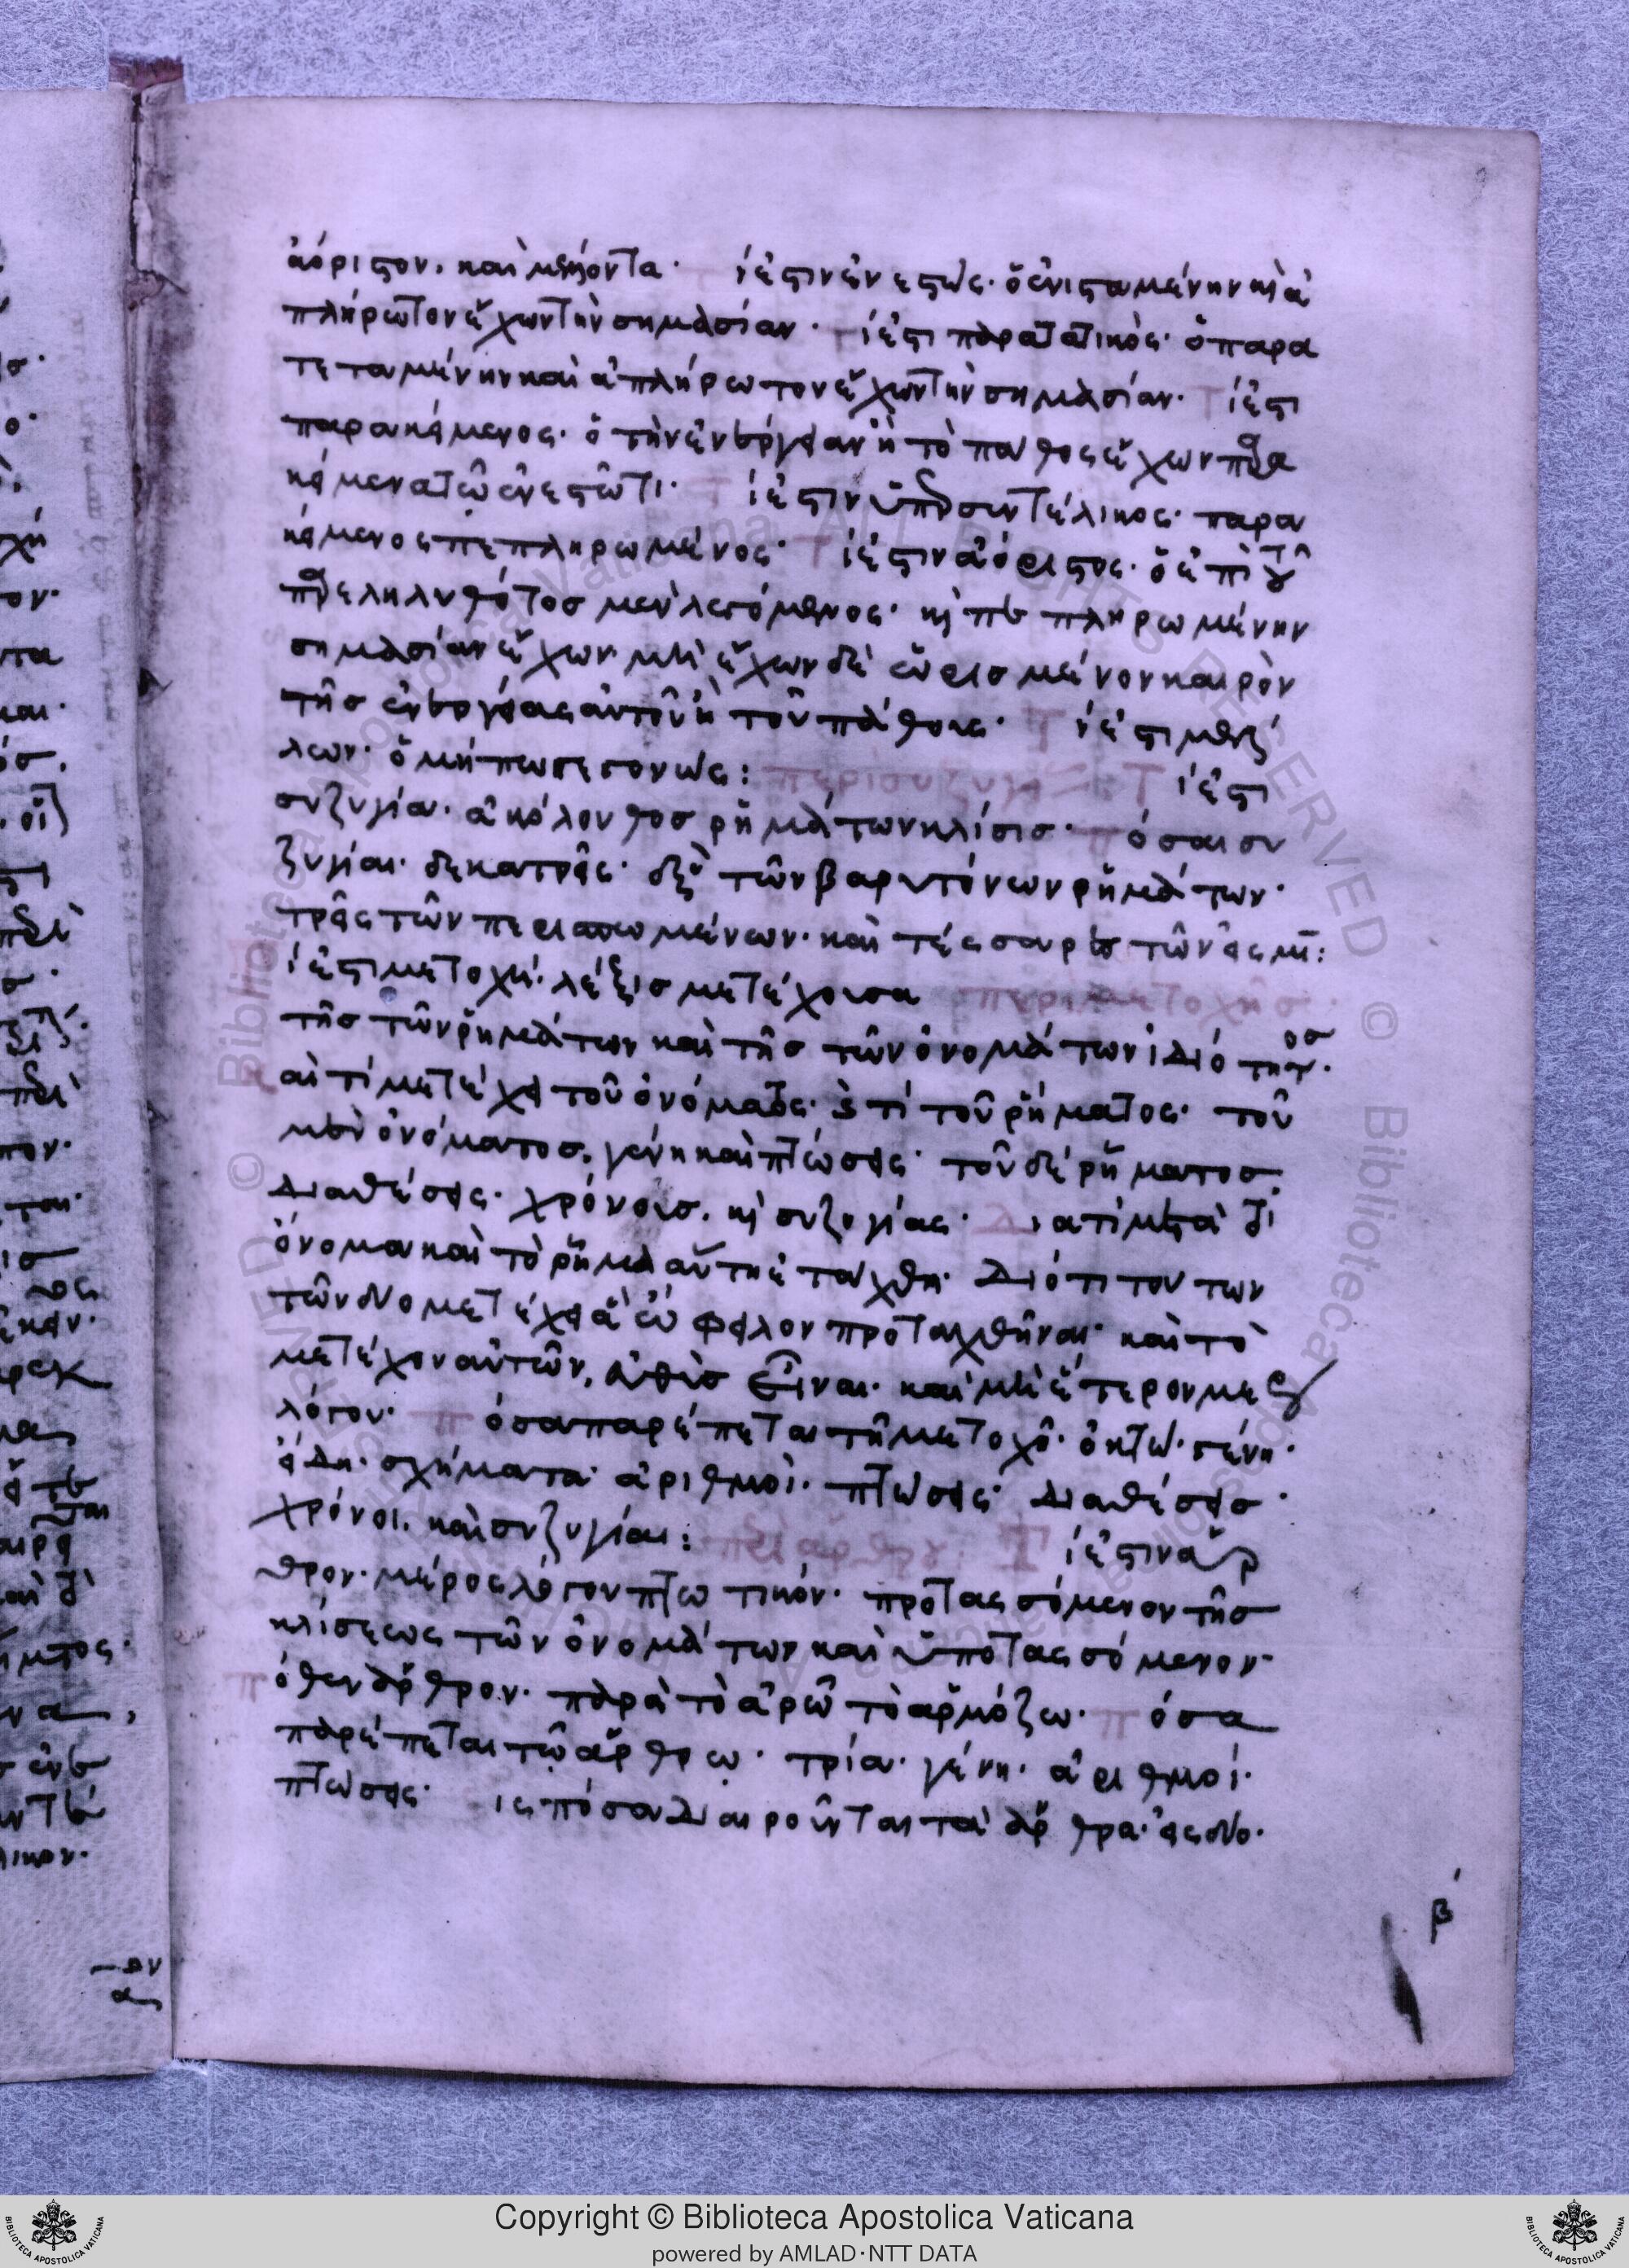 ἀόριστον. καὶ μέλλοντα· τί ἐστιν ἐνεστώς· ὁ ἐνισταμένην καὶ ἀ
πλήρωτον ἔχων τὴν σημασίαν· τί ἐστι παρατατικός· ὁ παρα
τεταμένην καὶ ἀπλήρωτον ἔχων τὴν σημασίαν· τί ἐστι
παρακείμενος· ὁ τὴν ἐνέργειαν ἢ τὸ πάθος ἔχων παρα
κείμενα τῶ ἐνεστῶτι· τί ἐστιν ὑπερσυντέλικος· παρα
κείμενος πεπληρωμένος· τί ἐστιν ἀόριστος· ὁ ἐπὶ τοῦ
παρεληλυθότος μὲν λεγόμενος· καὶ πεπληρωμένην
σημασίαν ἔχων· μὴ ἔχων δὲ ὡρισμένον καιρὸν
τῆς ἐνεργείας αὐτοῦ ἢ τοῦ πάθους· τί ἐστι μέλ
λων· ὁ μήπω γεγονώς: περὶ συζυγι τί ἐστι
συζυγία· ἀκόλουθος ῥημάτων κλίσις· πόσαι συ
ζυγίαι· δεκατρεῖς· ἓξ τῶν βαρυτόνων ῥημάτων·
τρεῖς τῶν περισπωμένων· καὶ τέσσαρες τῶν εἰς μι:
τί ἐστι μετοχή· λέξις μετέχουσα περὶ μετοχῆς·
τῆς τῶν ῥημάτων καὶ τῆς τῶν ὀνομάτων ἰδιότητος·
καὶ τί μετέχει τοῦ ὀνόματος· καὶ τί τοῦ ῥήματος· τοῦ
μὲν ὀνόματος, γένη καὶ πτώσεις· τοῦ δὲ ῥήματος
διαθέσεις· χρόνους. καὶ συζυγίας· διατί μετὰ τὸ
ὄνομα καὶ τὸ ῥῆμα αὕτη ἐτάχθη· διότι τούτων
τῶν δύο μετέχει ἃ ὤφειλον προταχθῆναι· καὶ τὸ
μετέχον αὐτῶν, εὐθὺς εἶναι· καὶ μὴ ἕτερον μέρος
λόγου· πόσα παρέπεται τῆ μετοχῆ· ὀκτώ· γένη·
εἴδη· σχήματα· ἀριθμοὶ· πτώσεις· διαθέσεις·
χρόνοι. καὶ συζυγίαι: περὶ ἄρθρου: τί ἐστιν ἄρ
θρον· μέρος λόγου πτωτικόν· προτασσόμενον τῆς
κλίσεως τῶν ὀνομάτων καὶ ὑποτασσόμενον·
πόθεν ἄρθρον· παρὰ τὸ ἀρῶ τὸ ἁρμόζω· πόσα
παρέπεται τῶ ἄρθρω· τρία· γένη· ἀριθμοί·
πτώσεις· εἰς πόσα διαιροῦνται τὰ ἄρθρα· εἰς δύο·
β´
Copyright © Biblioteca Apostolica Vaticana
powered by AMLAD·NTT DATA